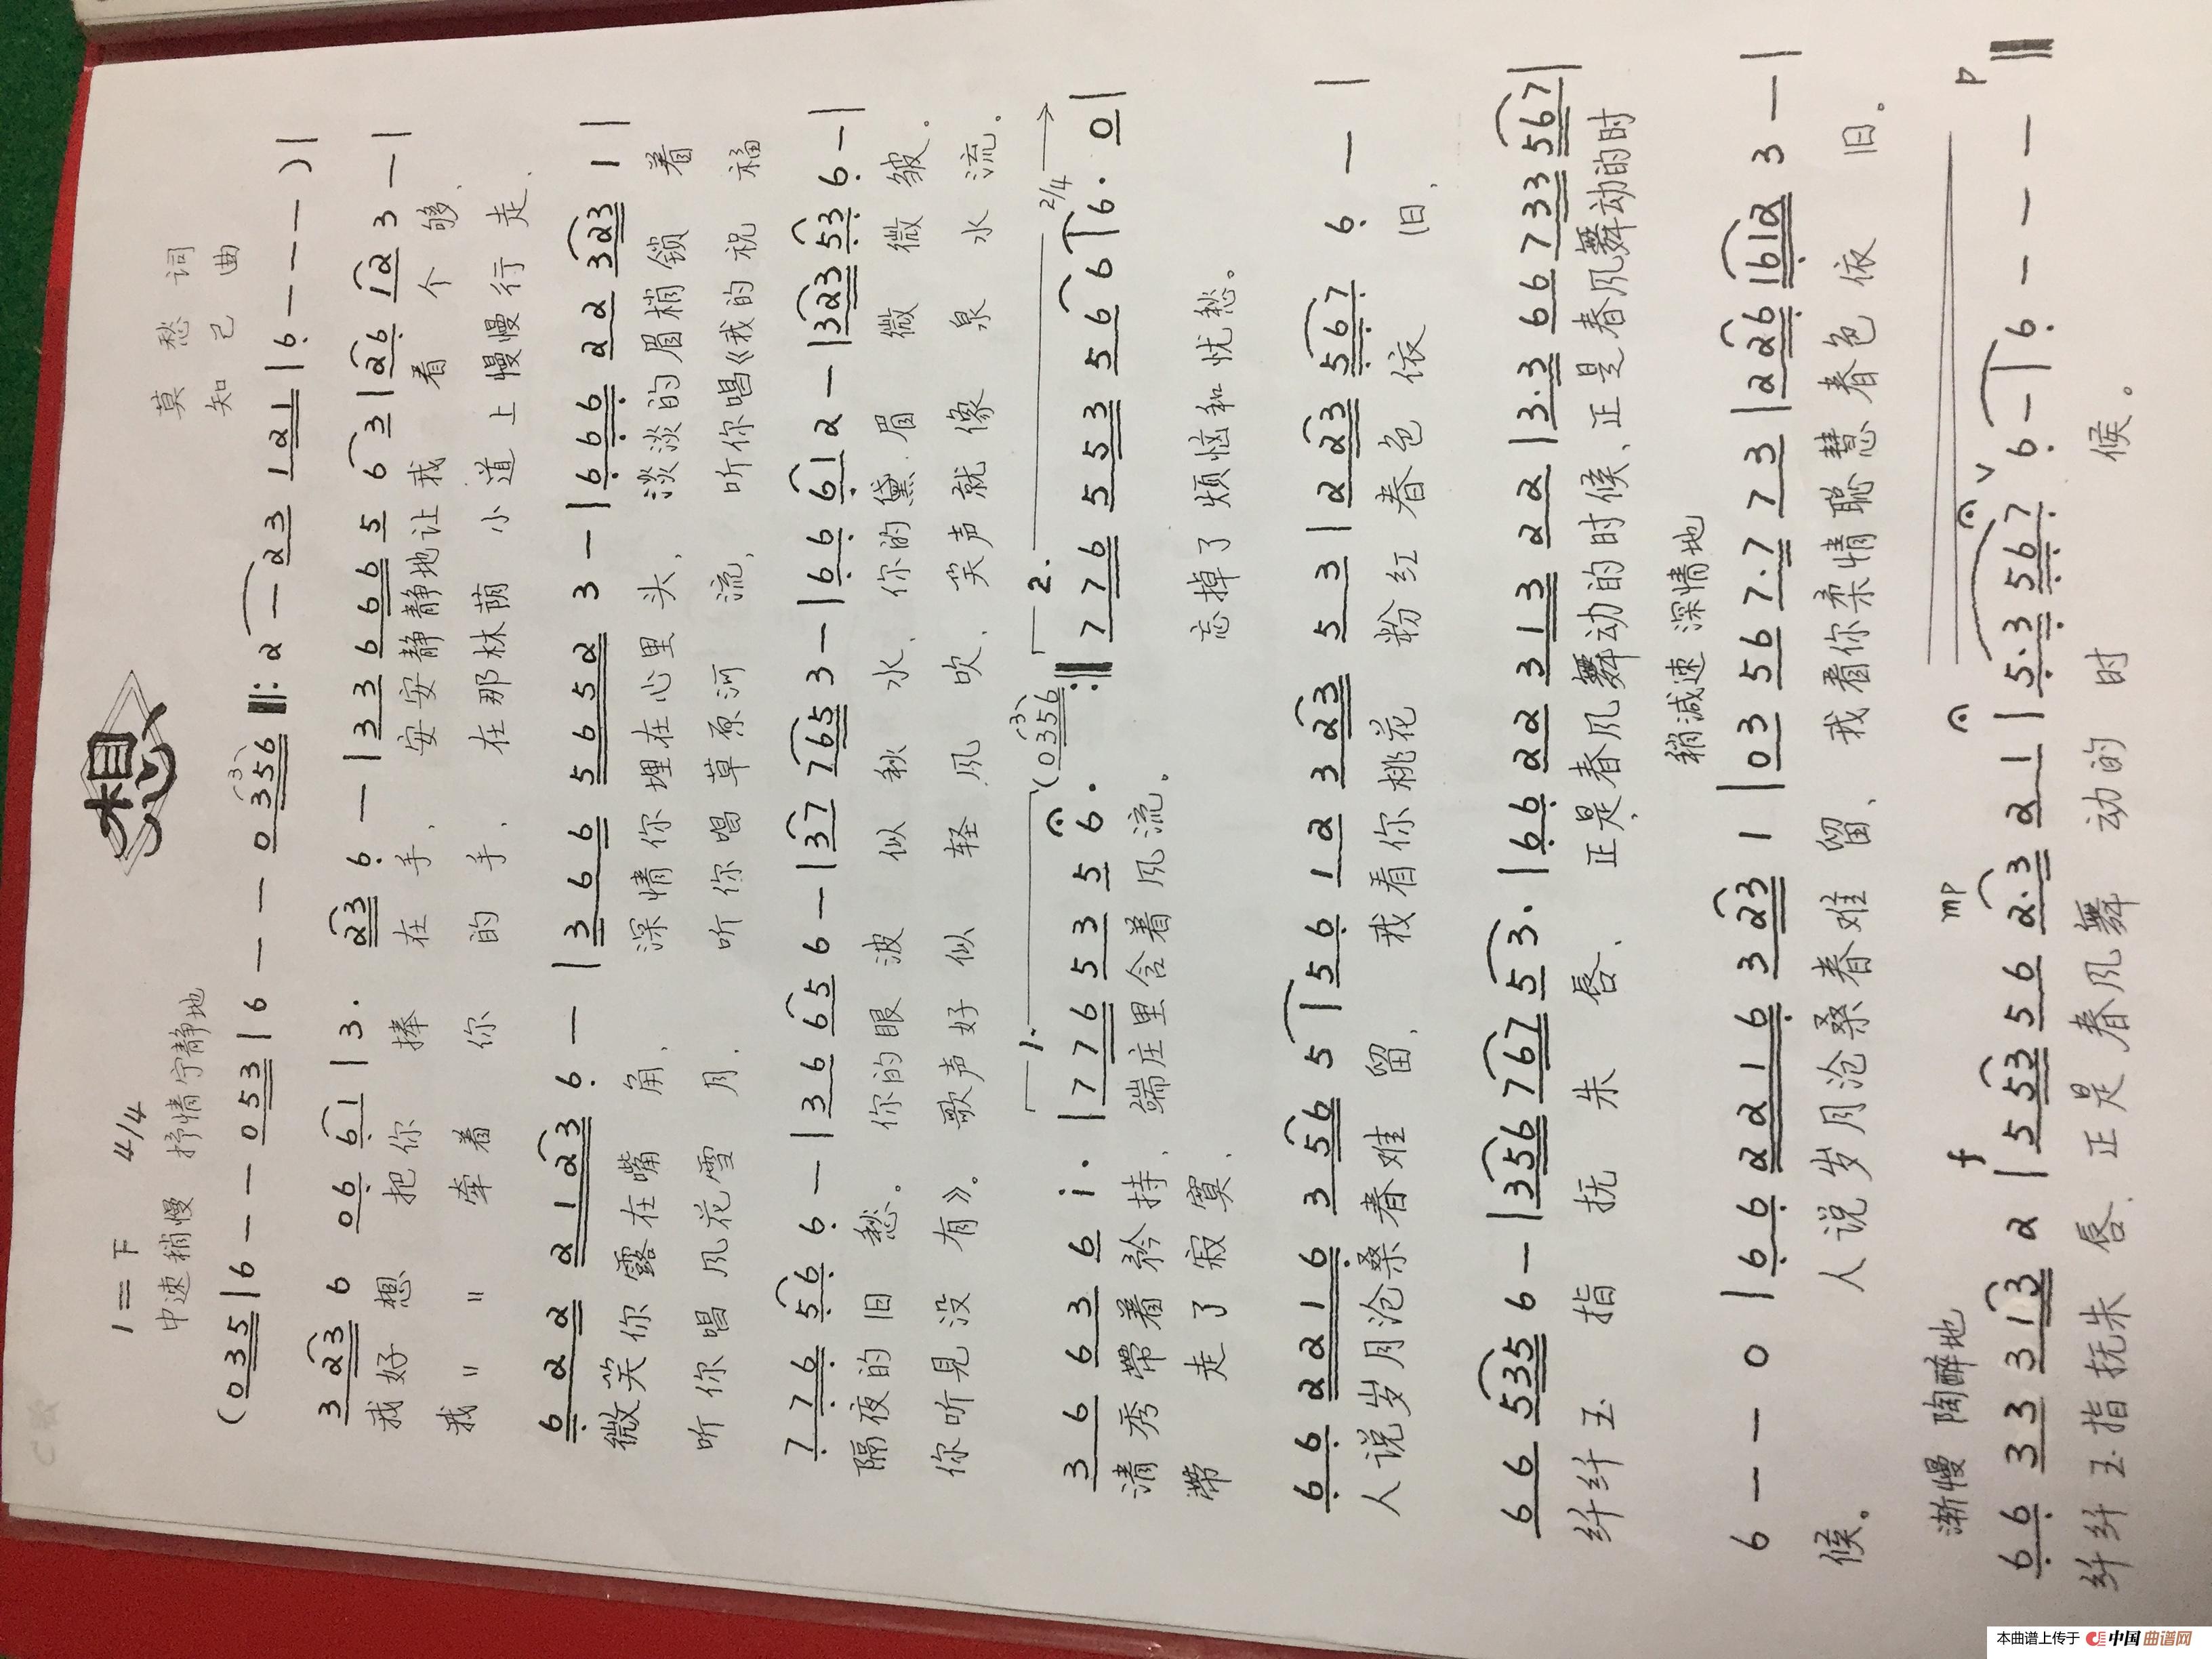 想
1=F 4/4
中速稍慢 抒情宁静地
莫愁 词
知己 曲
(0 3 5 | 6 - - 0 5 3 | 6 - - 0 3 5 6 ‖: 2 - 2 3 1 2 1 | 6 - - - ) |
3 2 3 6 0 6 6 1 | 3. 2 3 6 - | 3 3 6 6 6 5 6 3 | 2 6 1 2 3 - |
我好想 把你捧在手、安安静静地让我看个够、
我〃〃 牵着你的手、在那林荫小道上慢慢行走、
6 2 2 2 1 2 3 6 - | 3 6 6 5 6 5 2 3 - | 6 6 6 2 2 3 2 3 1 |
微笑你露在嘴角、深情你埋在心里头、淡淡的眉梢锁着
听你唱风花雪月、听你唱草原河流、听你唱《我的祝福
7 7 6 5 6 6 - | 3 6 6 5 6 - | 3 7 7 6 5 3 - | 6 6 6 1 2 - | 3 2 3 5 3 6 - |
隔夜的旧愁。你的眼波似秋水、你的黛眉微微皱。
你听见没有》。歌声好似轻风吹、笑声就像泉水流。
1. (0 3 5 6 2. 2/4
3 6 6 3 6 i. | 7 7 6 5 3 5 6. :‖ 7 7 6 5 5 3 5 6 6 | 6. 0 |
清秀带着矜持、端庄里含着风流。
带走了寂寞、忘掉了烦恼和忧愁。
6 6 2 2 1 6 3 5 6 5 | 5 6 1 2 3 2 3 5 3 | 2 2 3 5 6 7 6 - |
人说岁月沧桑春难留、我看你桃花粉红春色依旧、
6 6 5 3 5 6 - | 3 5 6 7 6 7 5 3. | 6 6 2 2 3 1 3 2 2 | 3. 3 6 6 7 3 3 5 6 7 |
纤纤玉指抚朱唇、正是春风舞动的时候、正是春风舞动的时
稍减速 深情地
6 - - 0 | 6 6 2 2 1 6 3 2 3 1 | 0 3 5 6 7. 7 7 3 | 2 2 6 1 6 1 2 3 - |
候。人说岁月沧桑春难留、我看你柔情聪慧春色依旧。
渐慢 陶醉地 f mp p
6 6 3 3 3 1 3 2 | 5 5 3 5 6 2. 3 2 1 | 5. 3 5 6 7 6 - | 6 - - - ‖
纤纤玉指抚朱唇、正是春风舞动的时候。
本曲谱上传于 中国曲谱网